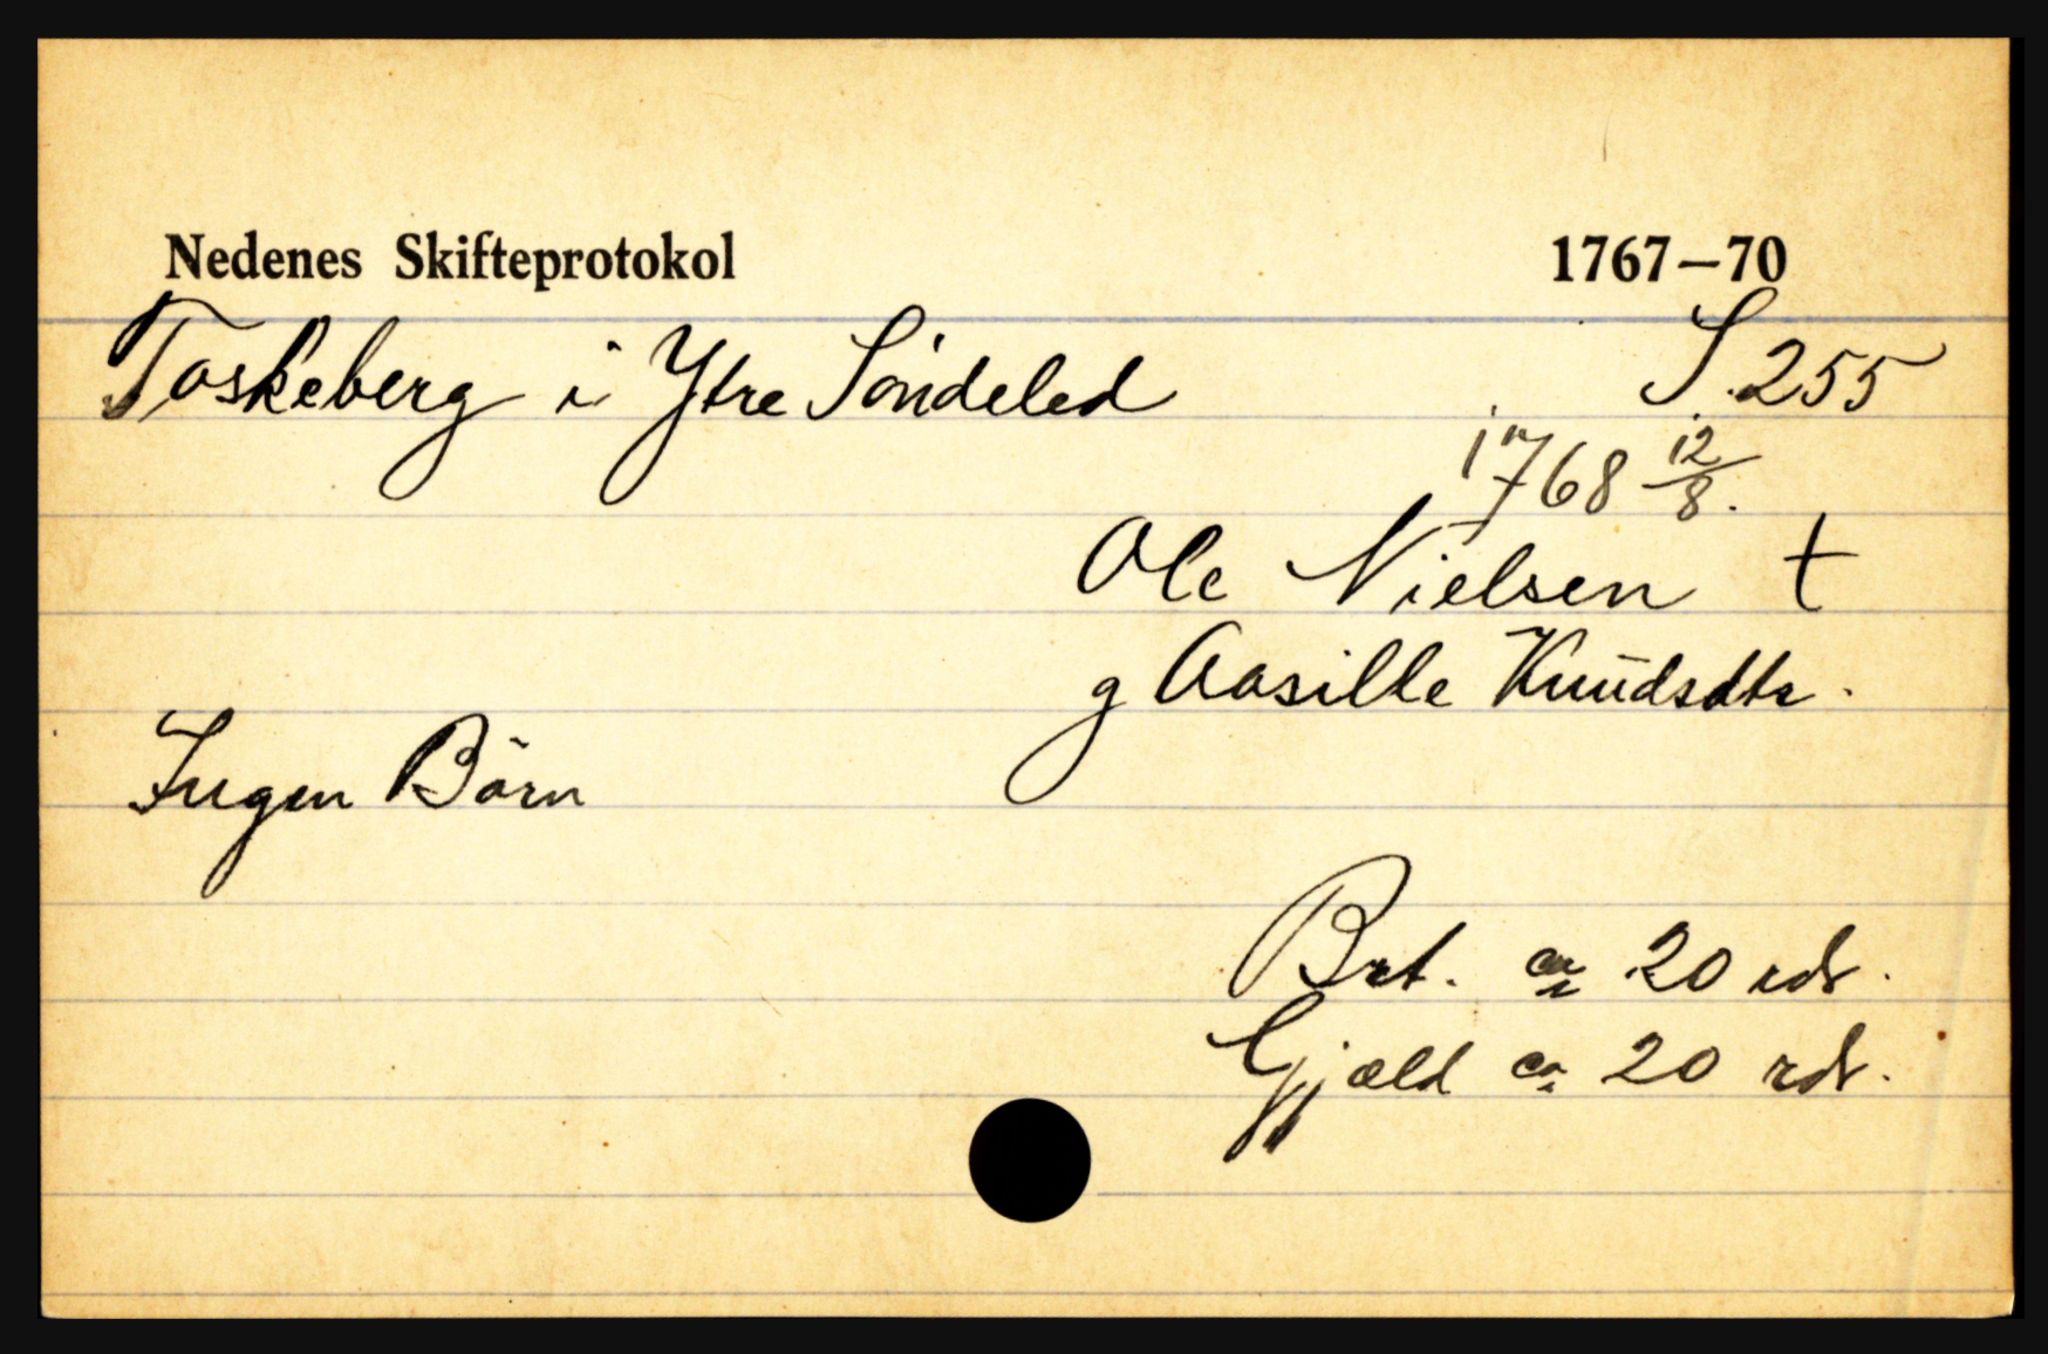 Nedenes Skifteprotokol 1767–70
Toskeberg i Ytre Söndeled S. 255
1768 12/8.
Ole Nielsen †
g Aasille Knudsdtr.
Ingen Börn
Brt. ca 20 rdr.
Gjæld ca 20 rdr.